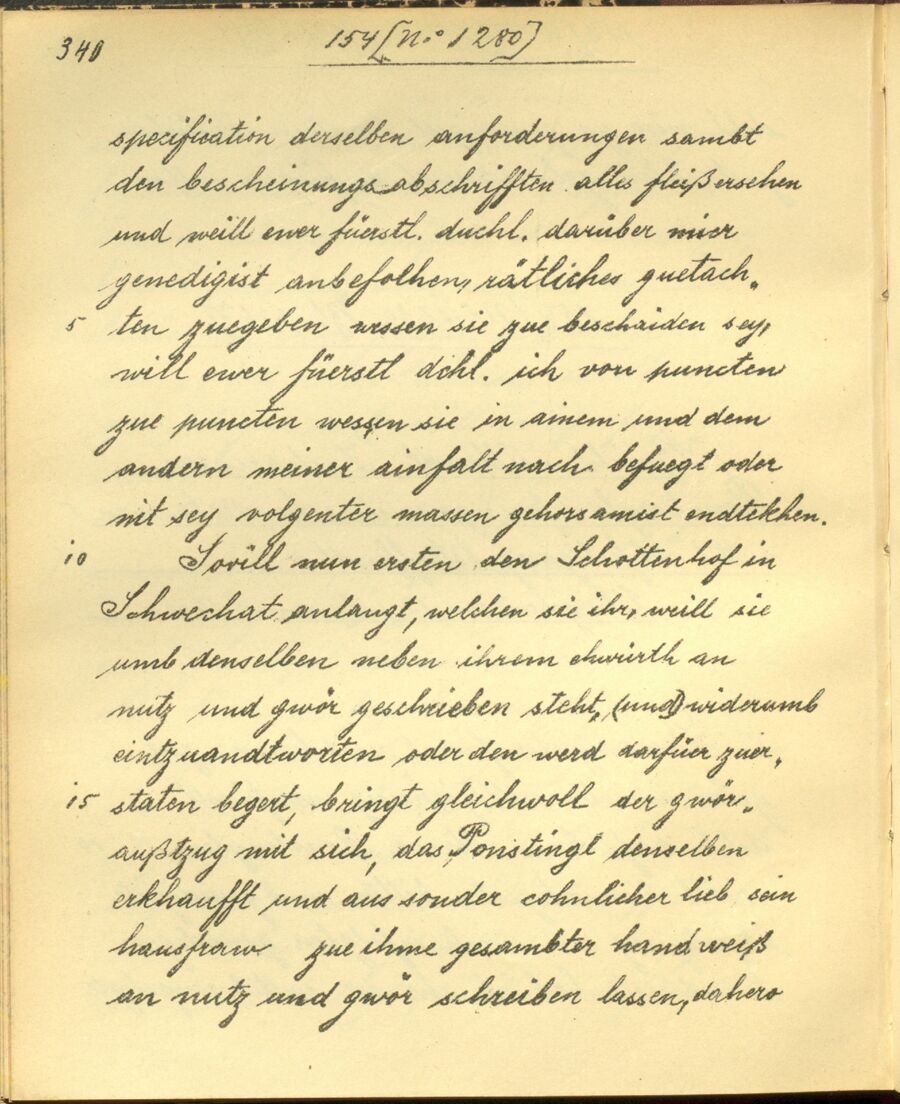 340
154 [No 1280]
specification derselben anforderungen sambt
den bescheinungs abschrifften alles fleiß ersehen
und weill ewer füerstl. duchl. darüber mier
genedigist anbefolhen, rätliches guetach„
5 ten zuegeben wessen sie zue beschaiden sey,
will ewer füerstl dchl. ich von puncten
zue puncten wessen sie in ainem und dem
andern meiner ainfalt nach befuegt oder
nit sey volgenter massen gehorsamist endtekhen.
10 Sovill nun ersten den Schottenhof in
Schwechat anlangt, welchen sie ihr, weill sie
umb denselben neben ihrem ehwürth an
nutz und gwör geschrieben steht, (und) widerumb
eintzuandtworten oder den werd darfüer zuer„
15 staten begert, bringt gleichwoll der gwör„
außtzug mit sich, das Ponstingl denselben
erkhaufft und aus sonder cohnlicher lieb sein
hausfraw zue ihme gesambter hand weiß
an nutz und gwör schreiben lassen, dahero